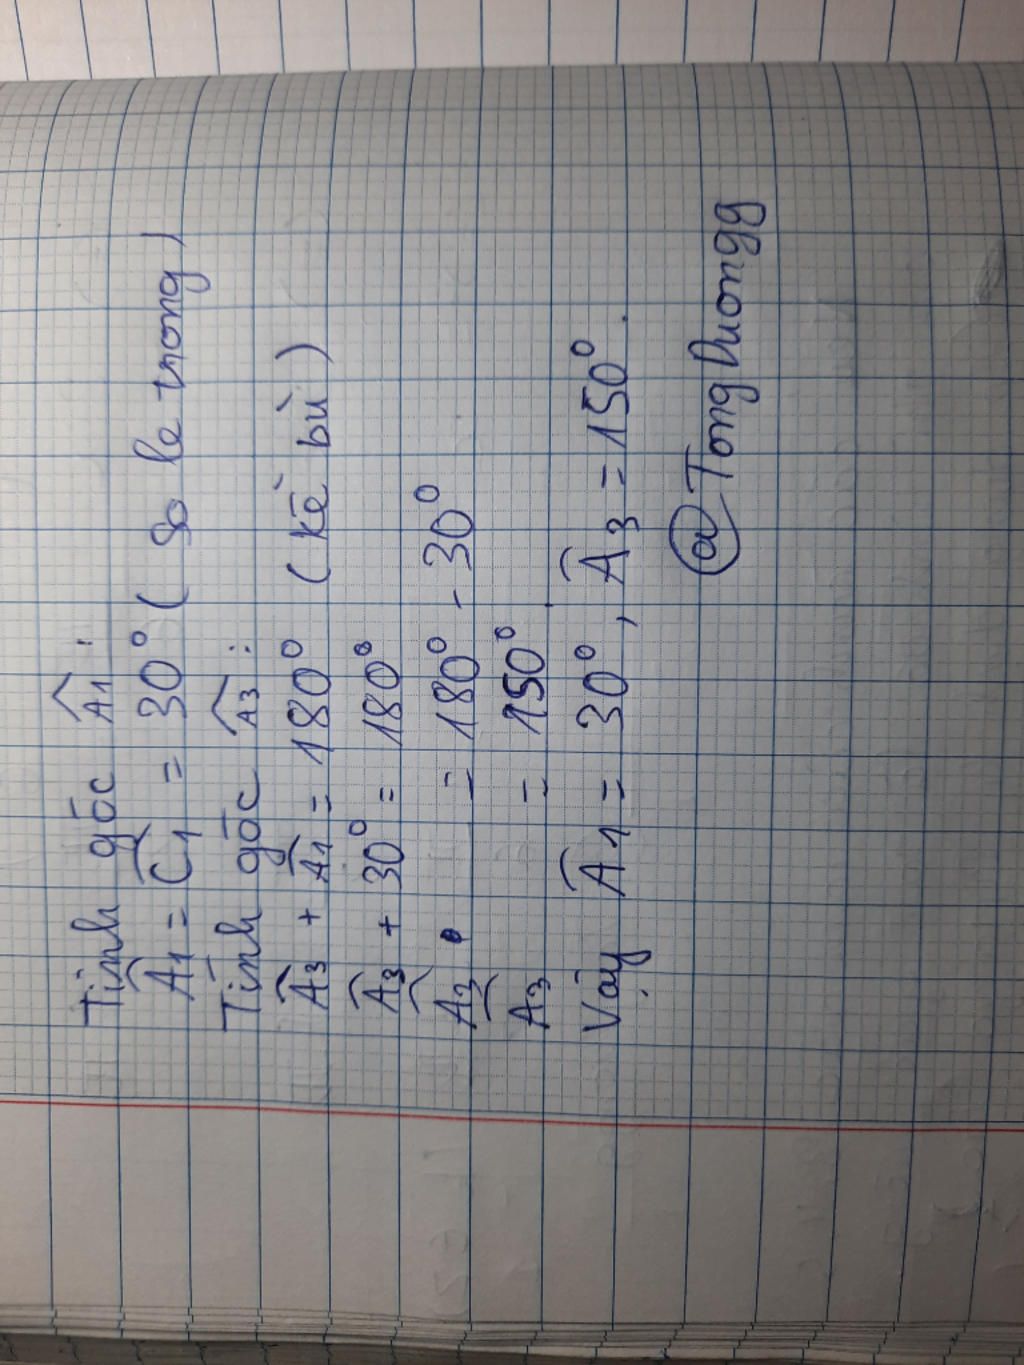 Tính góc Â1:
Â1 = Ĉ1 = 30° ( so le trong)
Tính góc Â3:
Â3 + Â1 = 180° (kề bù)
Â3 + 30° = 180°
Â3 = 180° - 30°
Â3 = 150°
Vậy Â1 = 30°, Â3 = 150°.
@TongDuongg